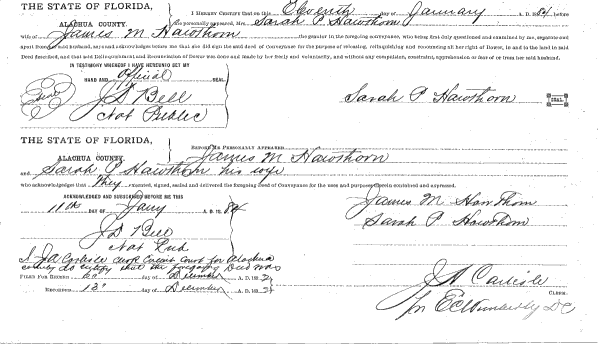 THE STATE OF FLORIDA,
ALACHUA COUNTY.
I HEREBY CERTIFY that on this Eleventh day of January A. D. 1884, before
me personally appeared, Mrs. Sarah P. Hawthorn
wife of James M Hawthorn the grantor in the foregoing conveyance, who being first duly questioned and examined by me, separate and
apart from her said husband, say and acknowledges before me that she did sign the said deed of Conveyance for the purpose of releasing, relinquishing and renouncing all her right of Dower, in and to the land in said
Deed described, and that said Relinquishment and Renunciation of Dower was done and made by her freely and voluntarily, and without any compulsion, constraint, apprehension or fear of or from her said husband.
IN TESTIMONY WHEREOF I HAVE HEREUNTO SET MY
HAND AND Official
Seal
J D Bell
Not Public
Sarah P Hawthorn SEAL
THE STATE OF FLORIDA,
ALACHUA COUNTY.
BEFORE ME PERSONALLY APPEARED James M Hawthorn
and Sarah P. Hawthorn his wife
who acknowledges that they executed, signed, sealed and delivered the foregoing deed of Conveyance for the uses and purposes therein contained and expressed.
ACKNOWLEDGED AND SUBSCRIBED BEFORE ME THIS
11th DAY OF Jany A. D. 1884
James M Hawthorn
Sarah P. Hawthorn
J D Bell
Not Pub
I J A Carlisle clerk Circuit Court for Alachua
county do certify that the foregoing Deed was
FILED FOR RECORD day of December A. D. 18
RECORDED 13" day of December A. D. 18
J A Carlisle
CLERK.
DC